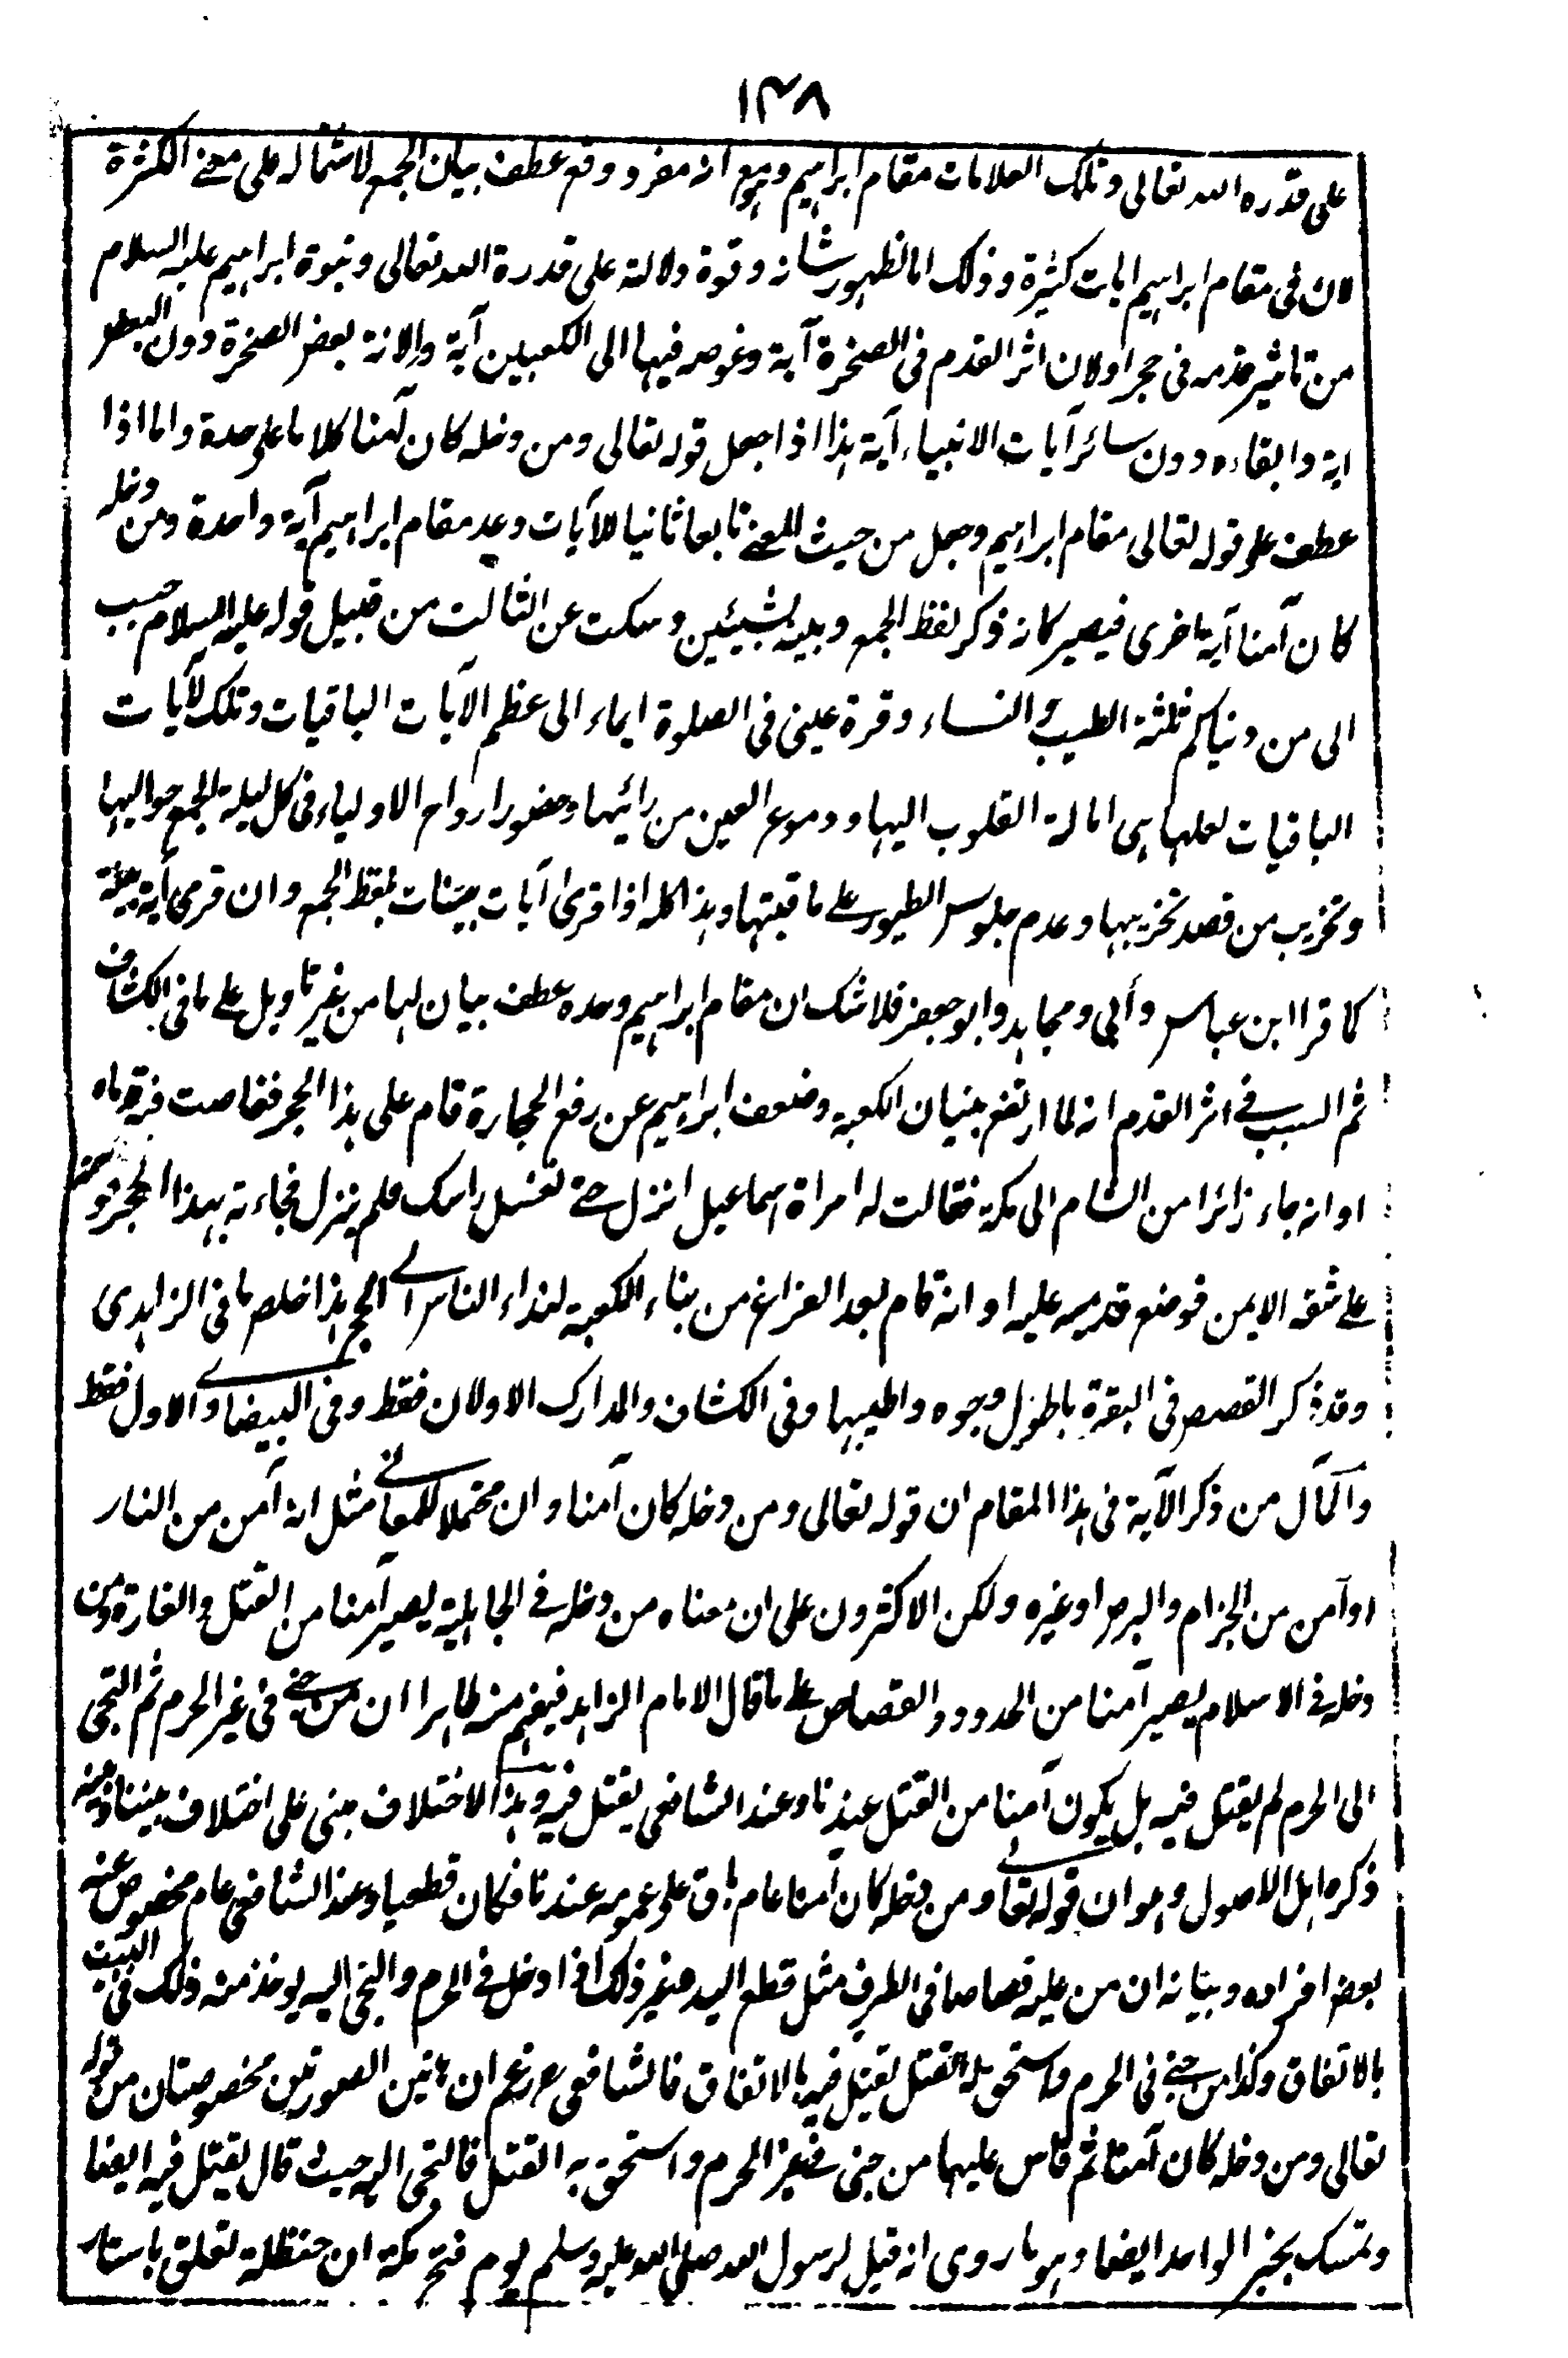 ١٣٨
على قدره الله تعالى وتلك العلامات مقام ابراهيم وهو مع انه مفرد وقع عطف بيان الجمع لاشتماله على معنے الكثرة
لان فى مقام ابراهيم ايات كثيرة وذلك اما لظهور شانه وقوة دلالته على قدرة الله تعالى ونبوة ابراهيم عليه السلام
من تاثير قدمه فى حجر او لان اثر القدم فى الصخرة آية وغوصه فيها الى الكعبين آية والانة بعض الصخرة دون البعض
اية وابقاءه دون سائر آيات الانبياء آية هذا اذا جعل قوله تعالى ومن دخله كان آمنا كلاما على حدة واما اذا
عطف على قوله تعالى مقام ابراهيم وجعل من حيث المعنے تابعا ثانيا للآيات وعد مقام ابراهيم آية واحدة ومن دخله
كان آمنا آية اخرى فيصير كانه ذكر لفظ الجمع وبينه بشيئين وسكت عن الثالث من قبيل قوله عليه السلام حبب
الى من دنياكم ثلثة الطيب والنساء وقرة عينى فى الصلوة ايماء الى عظم الآيات الباقيات وتلك الآيات
الباقيات لعلها هى امالة القلوب اليها ودموع العين من رائيها وحضور ارواح الاولياء فى كل ليلة الجمع حواليها
وتخريب من قصد تخريبها وعدم جلوس الطيور علے ما قبتها وهذا كله اذا قرئ آيات بينات بلفظ الجمع وان قرئ آية بينة
كما قرا ابن عباس وأبي ومجاهد وابو جعفر فلا شك ان مقام ابراهيم وحده عطف بيان لها من غير تاويل علے ما فى الكشاف
ثم السبب فے اثر القدم انه لما ارتفع بنيان الكعبة وضعف ابراهيم عن رفع الحجارة قام على هذا الحجر فغاصت فيه قدماه
او انه جاء زائرا من الشام الى مكة فقالت له امراة اسماعيل انزل حتے تغسل راسك فلم ينزل فجاءته بهذا الحجر فوضعته
علے شقه الايمن فوضع قدميه عليه او انه قام بعد الفراغ من بناء الكعبة لنداء الناس الے الحج هذا خلص ما فى الزاهدى
وقد ذكر القصص فى البقرة باطول وجوه واطيبها وفى الكشاف والمدارك الاولان فقط وفى البيضاوے الاول فقط
والمآل من ذكر الآية فى هذا المقام ان قوله تعالى ومن دخله كان آمنا وان محتملا للمعانے مثل انه آمن من النار
او آمن من الجزام والبرص او غيره ولكن الاكثرون على ان معناه من دخله فے الجاهلية يصير آمنا من القتل والغارة ومن
دخله فے الاسلام يصير آمنا من الحدود والقصاص علے ما قال الامام الزاهد فيفهم منه ظاهرا ان من جنے فى غير الحرم ثم التجى
الى الحرم لم يقتل فيه بل يكون آمنا من القتل عندنا وعند الشافعى يقتل فيه وهذا الاختلاف مبنى على اختلاف بيننا وبينه
ذكره اهل الاصول وهو ان قوله تعالے ومن دخله كان آمنا عام باق على عمومه عندنا فكان قطعيا وعند الشافعى عام مخصوص عنه
بعض افراده وبيانه ان من عليه قصاصا فى الطرف مثل قطع اليد وغير ذلك اذا دخل فے الحرم والتجى اليه يوخذ منه ذلك فى البيت
بالاتفاق وكذا من جنے فى الحرم واستحق به القتل يقتل فيه بالاتفاق فالشافعى رح زعم ان هاتين الصورتين مخصوصتان من قوله
تعالى ومن دخله كان آمنا ثم قاس عليهما من جنى فے غير الحرم واستحق به القتل فالتجى اليه حيث قال يقتل فيه ايضا
وتمسك بخبر الواحد ايضا وهو ما روى انه قيل لرسول الله صلى الله عليه وسلم يوم فتح مكة ان حنظلة تعلق باستار